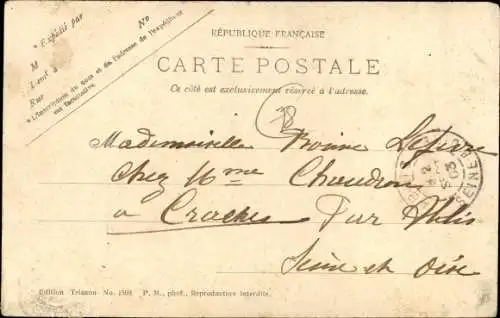 * Expédié par
No
M
Rue
* L'inscription du nom et de l'adresse de l'expéditeur
est facultative.
RÉPUBLIQUE FRANÇAISE
CARTE POSTALE
Ce côté est exclusivement réservé à l'adresse.
Mademoiselle
Chez Mme Chaudron
a Craches Par Ablis
Seine et Oise
Edition Trianon No. P. M., phot., Reproduction interdite.